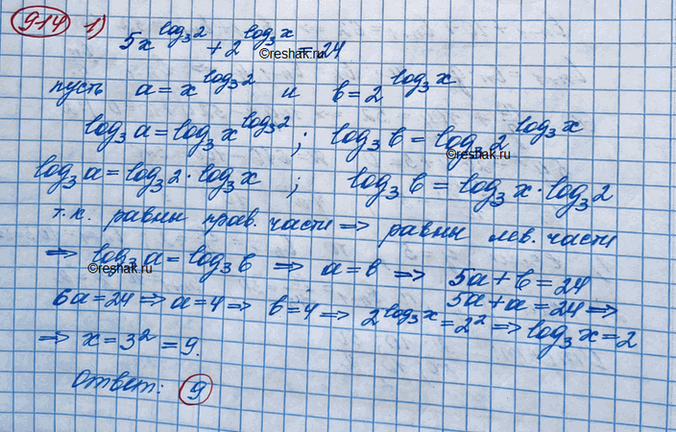 914 1) 5x^{log_3 2} + 2^{log_3 x} = 24
©reshak.ru
пусть a = x^{log_3 2} и в = 2^{log_3 x}
log_3 a = log_3 x^{log_3 2} ; log_3 в = log_3 2^{log_3 x}
©reshak.ru
log_3 a = log_3 2 · log_3 x ; log_3 в = log_3 x · log_3 2
т.к. равны прав. части ⇒ равны лев. части
⇒ log_3 a = log_3 в ⇒ a = в ⇒ 5a + в = 24
©reshak.ru
5a + a = 24 ⇒
6a = 24 ⇒ a = 4 ⇒ в = 4 ⇒ 2^{log_3 x} = 2^2 ⇒ log_3 x = 2
⇒ x = 3^2 = 9.
Ответ: 9